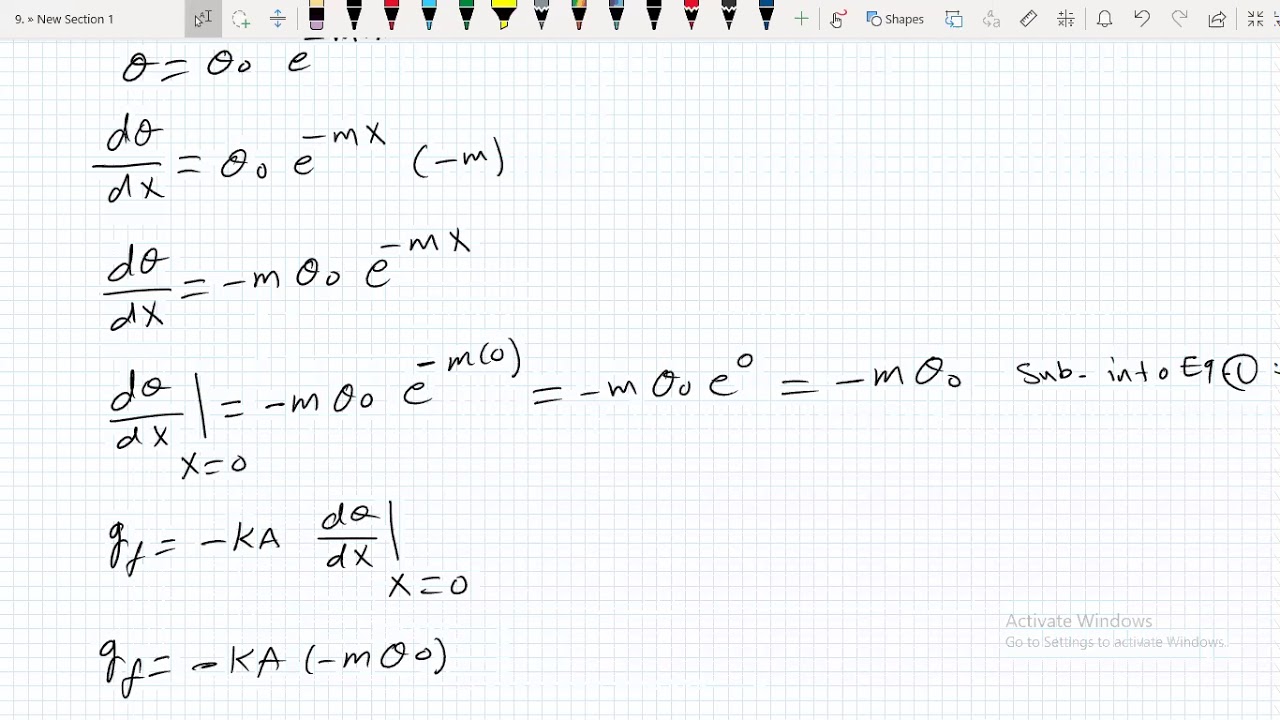 9. » New Section 1
Shapes
θ = θo e^-mx
dθ/dx = θo e^-mx (-m)
dθ/dx = -m θo e^-mx
dθ/dx | x=0 = -m θo e^-m(0) = -m θo e^0 = -m θo sub. into Eq ① :
qf = -KA dθ/dx | x=0
qf = -KA (-m θo)
Activate Windows
Go to Settings to activate Windows.